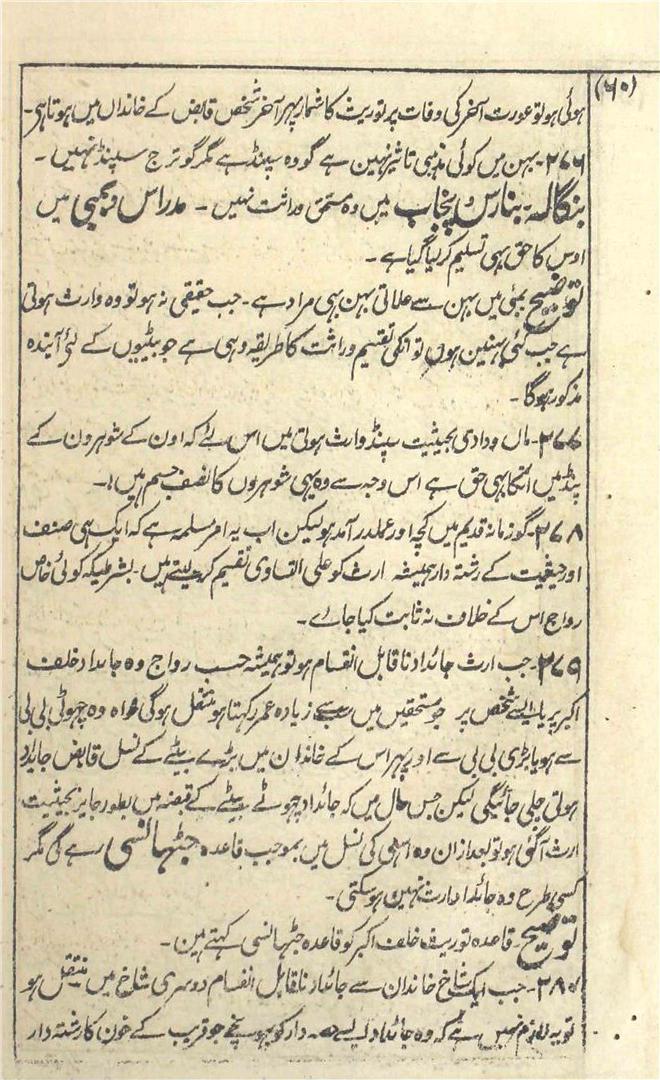 (٦٠)
ہوئی ہو تو عورت آخر کی وفات پر توریث کا شمار پہر آخر شخص قابض کے خاندان میں ہوتا ہی۔
٢٧٦۔ بہن میں کوئی مذہبی تاثیر نہین ہے گو وہ سپنڈ ہے مگر گوترج سپنڈ نہیں۔
بنگالہ۔ بنارس و پنجاب میں وہ مستحق وراثت نہیں۔ مدراس و بمبئی میں
اوس کا حق بہی تسلیم کر لیا گیا ہے۔
توضیح بمبئی میں بہن سے علاتی بہن بہی مراد ہے۔ جب حقیقی نہ ہو تو وہ وارث ہوتی
ہے جب کئی بہنین ہوں تو انکی تقسیم وراثت کا طریقہ وہی ہے جو بیٹیوں کے لئے آیندہ
مذکور ہوگا۔
٢٧٧۔ ماں و دادی بحیثیت سپنڈ وارث ہوتی ہیں اس لئے کہ اون کے شوہرون کے
پنڈ میں انکا بہی حق ہے اس وجہ سے وہ بہی شوہروں کا نصف جسم ہیں۔
٢٧٨۔ گو زمانہ قدیم میں کچہ اور عملدرآمد ہو لیکن اب یہ امر مسلمہ ہے کہ ایک ہی صنف
اور حیثیت کے رشتہ دار ہمیشہ ارث کو علی التساوی تقسیم کر لیتے ہیں۔ بشرطیکہ کوئی خاص
رواج اس کے خلاف نہ ثابت کیا جاے۔
٢٧٩۔ جب ارث جائداد ناقابل انقسام ہو تو ہمیشہ حسب رواج وہ جائداد خلف
اکبر پر یا ایسے شخص پر جو مستحقین میں سب سے زیادہ عمر رکہتا ہو منتقل ہوگی خواہ وہ چہوٹی بی بی
سے ہو یا بڑی بی بی سے اور پہر اس کے خاندان میں بڑے بیٹے کے نسل قابض جائداد
ہوتی چلی جائیگی لیکن جس حال میں کہ جائداد چہوٹے بیٹے کے قبضہ میں بطور جایز بحیثیت
ارث آگئی ہو تو بعد ازان وہ اسی کی نسل میں بموجب قاعدہ جٹہانسی رہے گی مگر
کسی طرح وہ جائداد لاوارث نہین ہو سکتی۔
توضیح۔ قاعدہ توریث خلف اکبر کو قاعدہ جٹہانسی کہتے ہین۔
٢٨٠۔ جب ایک شاخ خاندان سے جائداد ناقابل انقسام دوسری شاخ میں منتقل ہو
تو یہ لازم نہیں ہے کہ وہ جائداد ایسے دار کو پہونچے جو قریب کے خون کا رشتہ دار